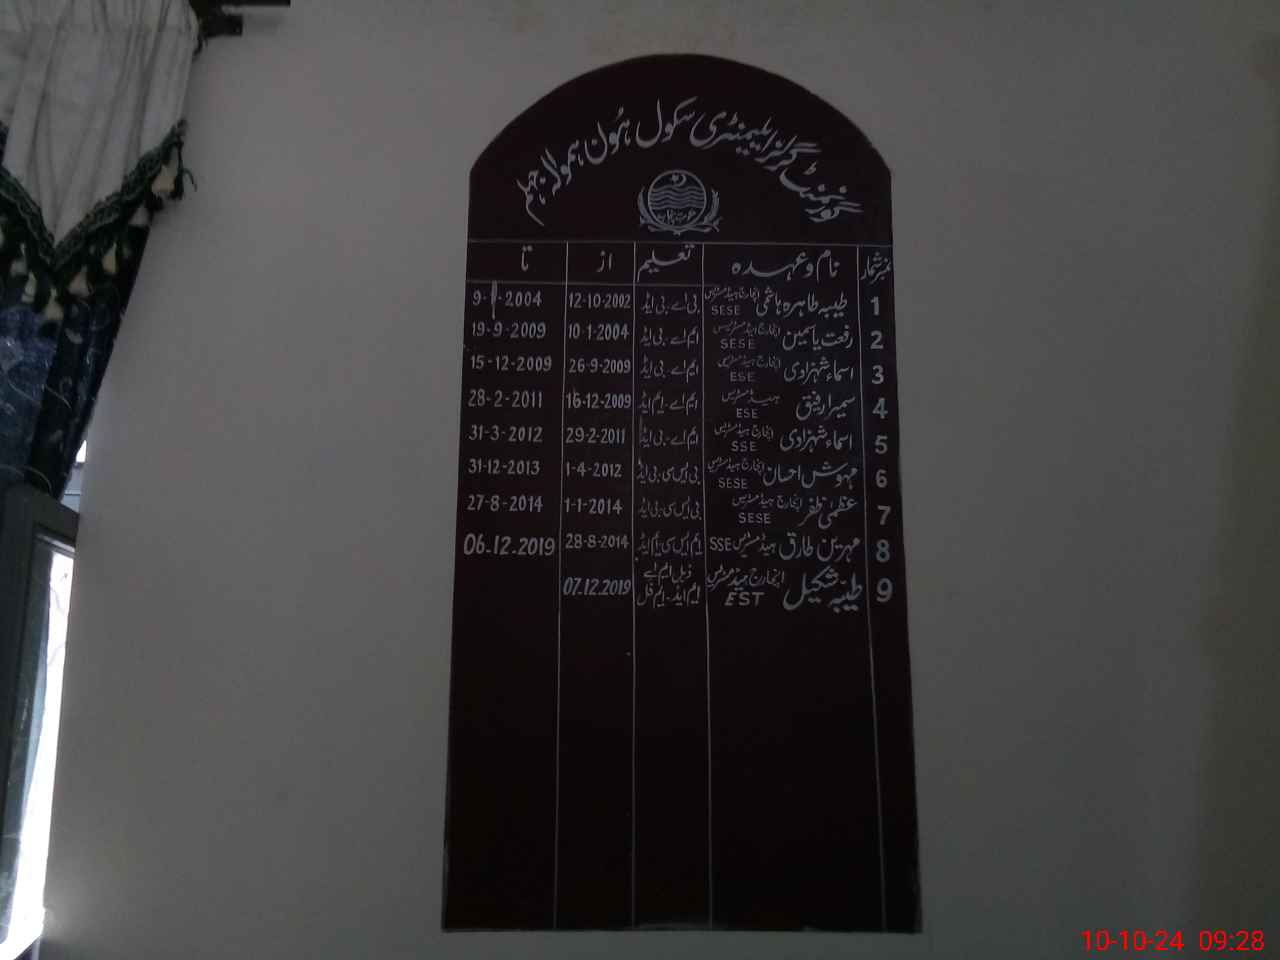 گورنمنٹ گرلز ایلیمنٹری سکول ہُون ہمولہ جہلم
حکومت پنجاب
نمبر شمار نام و عہدہ تعلیم از تا
1 طیبہ طاہرہ ہاشمی انچارج ہیڈ مسٹریس SESE بی اے۔بی ایڈ 12-10-2002 9-1-2004
2 رفعت یاسمین انچارج ہیڈ مسٹریس SESE ایم اے۔بی ایڈ 10-1-2004 19-9-2009
3 اسماء شہزادی انچارج ہیڈ مسٹریس ESE ایم اے۔بی ایڈ 26-9-2009 15-12-2009
4 سمیرا رفیق ہیڈ مسٹریس ESE ایم اے۔ایم ایڈ 16-12-2009 28-2-2011
5 اسماء شہزادی انچارج ہیڈ مسٹریس SSE ایم اے۔بی ایڈ 29-2-2011 31-3-2012
6 مہوش احسان انچارج ہیڈ مسٹریس SESE بی ایس سی۔بی ایڈ 1-4-2012 31-12-2013
7 عظمیٰ ظفر انچارج ہیڈ مسٹریس SESE بی ایس سی۔بی ایڈ 1-1-2014 27-8-2014
8 مہرین طارق ہیڈ مسٹریس SSE ایم ایس سی۔ایم ایڈ 28-8-2014 06.12.2019
9 طیبّہ شکیل انچارج ہیڈ مسٹریس EST ڈبل ایم اے ایم ایڈ۔ایم فل 07.12.2019
10-10-24 09:28